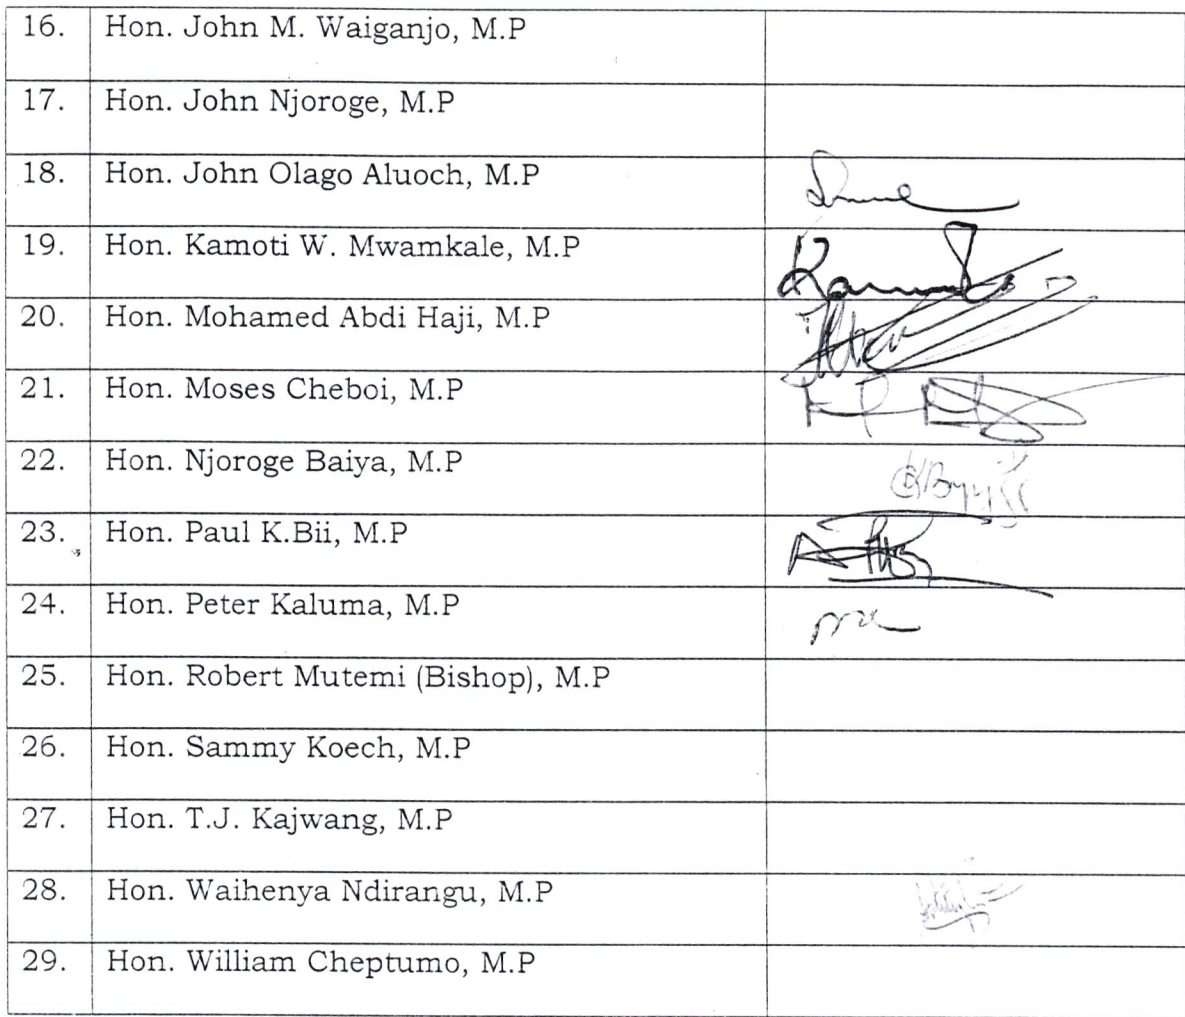 16. Hon. John M. Waiganjo, M.P
17. Hon. John Njoroge, M.P
18. Hon. John Olago Aluoch, M.P
19. Hon. Kamoti W. Mwamkale, M.P
20. Hon. Mohamed Abdi Haji, M.P
21. Hon. Moses Cheboi, M.P
22. Hon. Njoroge Baiya, M.P
23. Hon. Paul K.Bii, M.P
24. Hon. Peter Kaluma, M.P
25. Hon. Robert Mutemi (Bishop), M.P
26. Hon. Sammy Koech, M.P
27. Hon. T.J. Kajwang, M.P
28. Hon. Waihenya Ndirangu, M.P
29. Hon. William Cheptumo, M.P